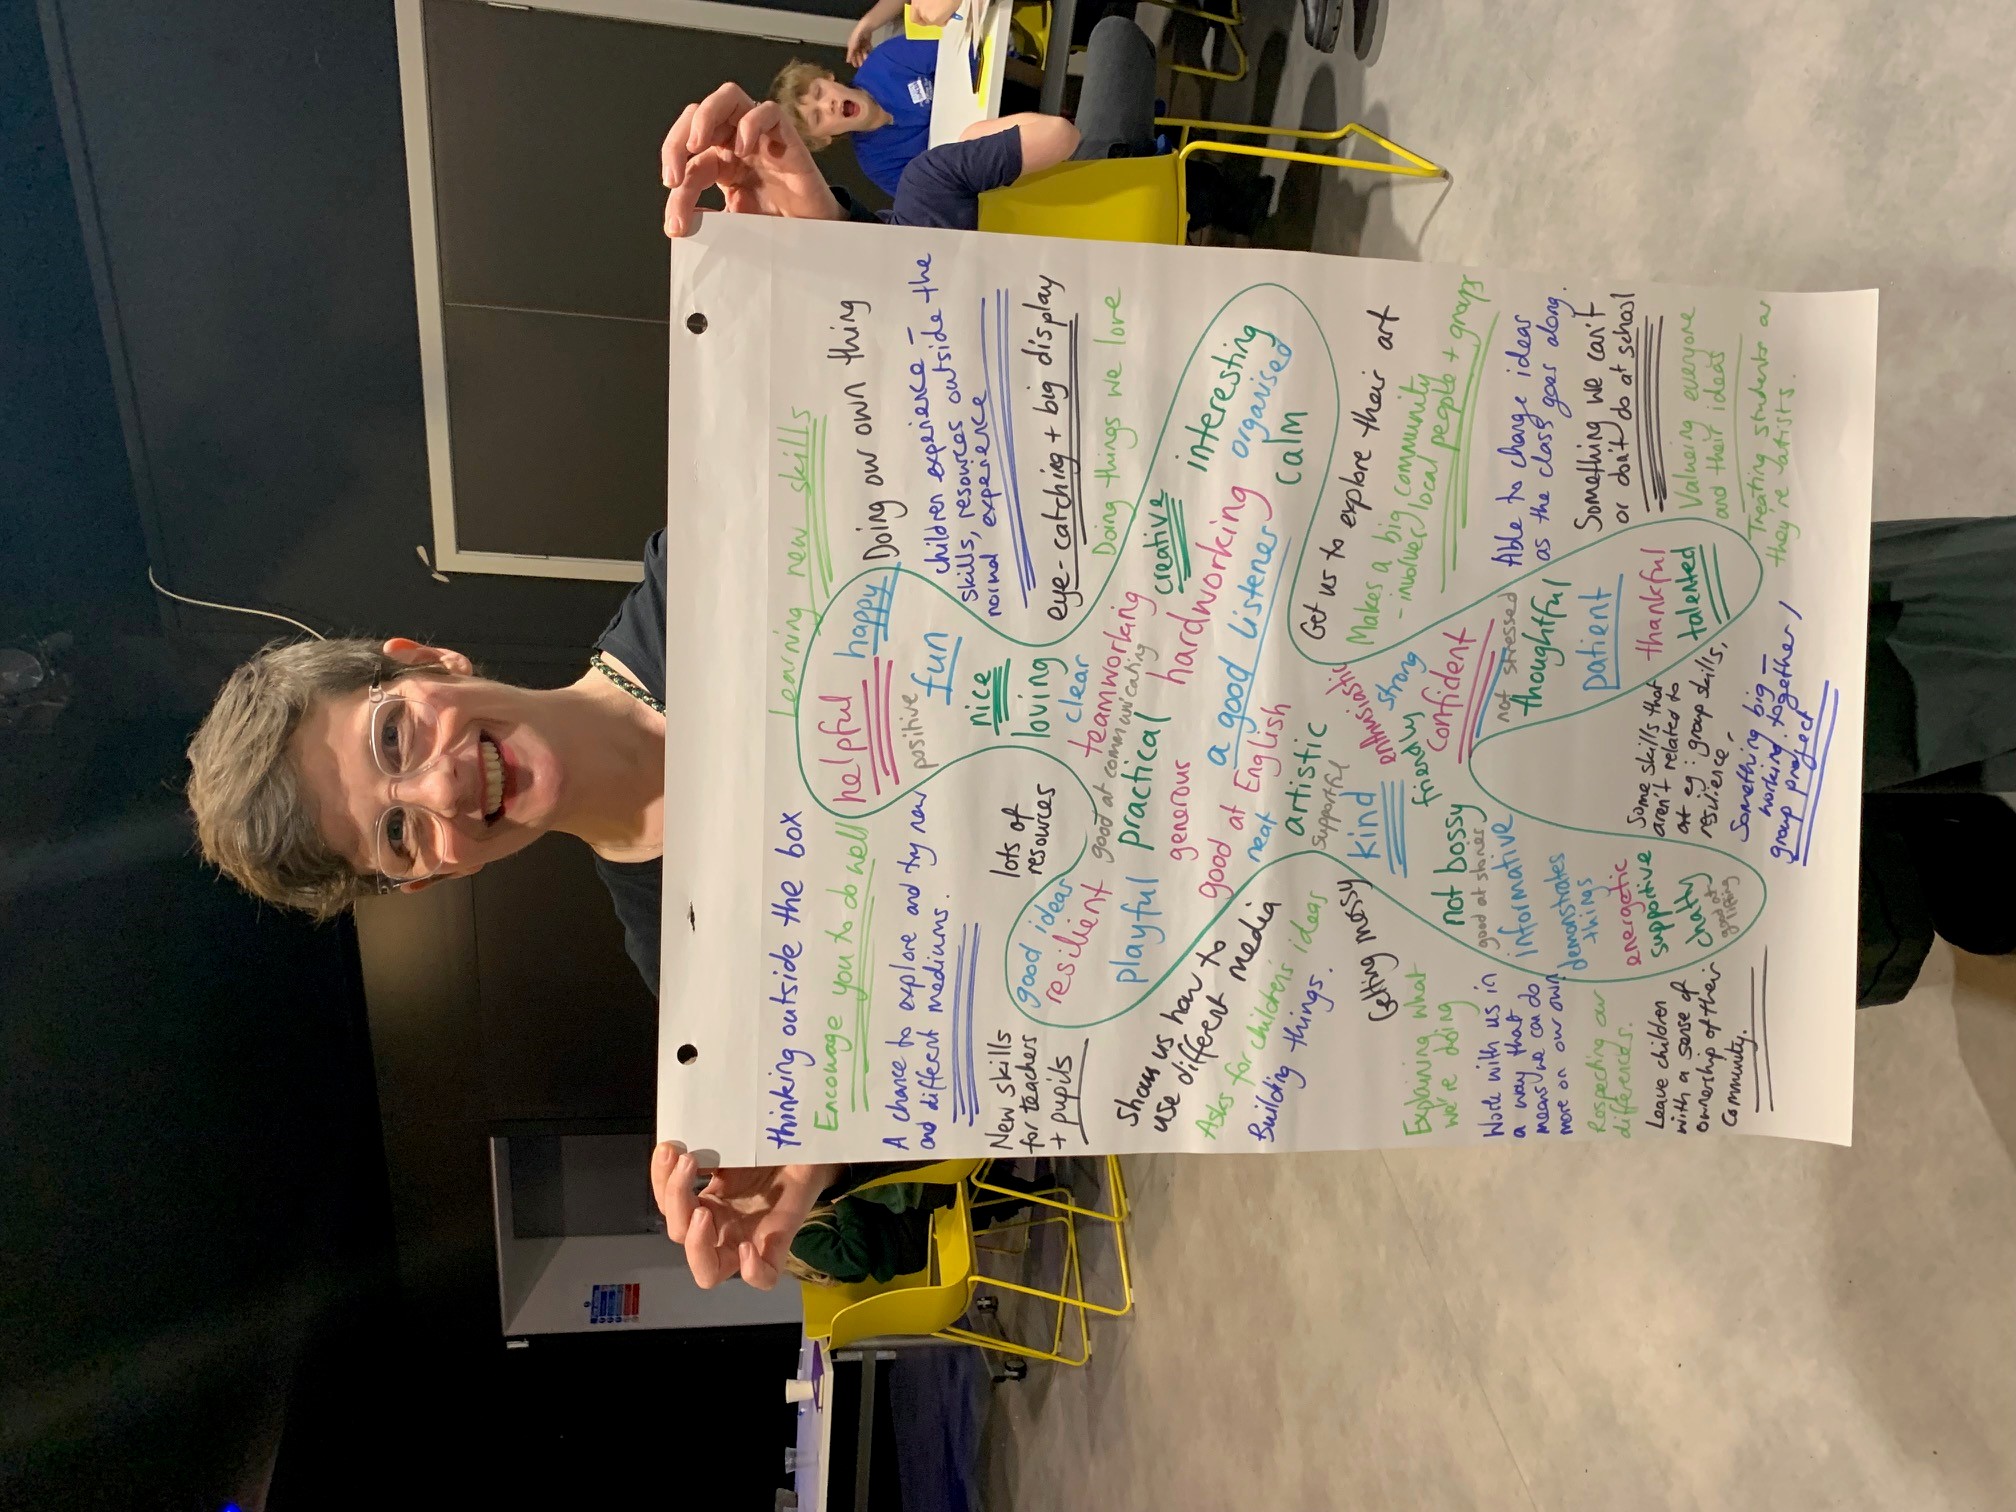 thinking outside the box
Learning new skills
Encourage you to do well
helpful
happy
Doing our own thing
A chance to explore and try new
and different mediums.
positive
fun
children experience –
skills, resources outside the
normal experience
nice
loving
clear
New skills
for teachers
+ pupils
lots of
resources
eye-catching + big display
Doing things we love
good ideas
resilient
playful
good at communicating
teamworking
practical
creative
interesting
organised
calm
generous
hardworking
good at English
a good listener
neat
artistic
supportive
Show us how to
use different media
Asks for children's ideas
Building things.
Getting messy
Get us to explore their art
Makes a big community
- involves/local people + groups
kind
enthusiastic
friendly
strong
confident
not bossy
good at stories
informative
demonstrates
things
energetic
supportive
chatty
good at
lifting
not stressed
thoughtful
patient
thankful
talented
Explaining what
we're doing
Work with us in
a way that
means we can do
more on our own
Respecting our
differences.
Leave children
with a sense of
ownership of their
community.
Able to change ideas
as the class goes along.
Something we can't
or don't do at school
Valueing everyone
and their ideas
Treating students as
they're artists.
Some skills that
aren't related to
art eg: group skills,
resilience.
Something big –
working together,
group project